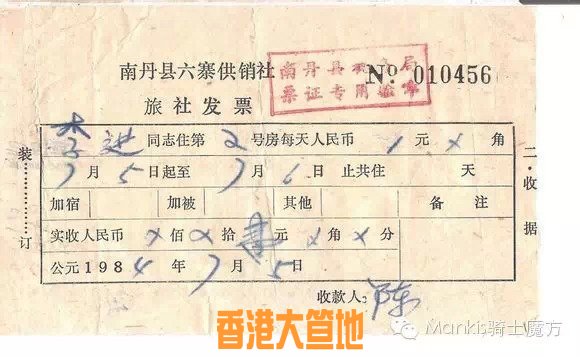 南丹县六寨供销社
南丹县
票证专用
№ 010456
旅社发票
李进同志住第2号房每天人民币1元X角
7月5日起至7月6日止共住 天
加宿 加被 其他 备注
实收人民币X佰X拾壹元X角X分
公元1984年7月5日
收款人：陈
装
订
二·收据
香港大管地
Mankis骑士魔方